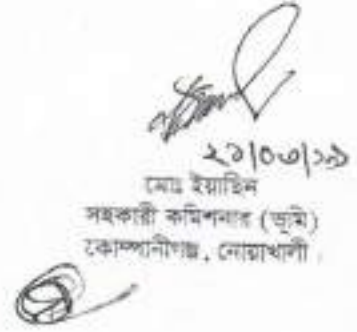 ২১/০৩/১৯
মোঃ ইয়াছিন
সহকারী কমিশনার (ভূমি)
কোম্পানীগঞ্জ, নোয়াখালী।